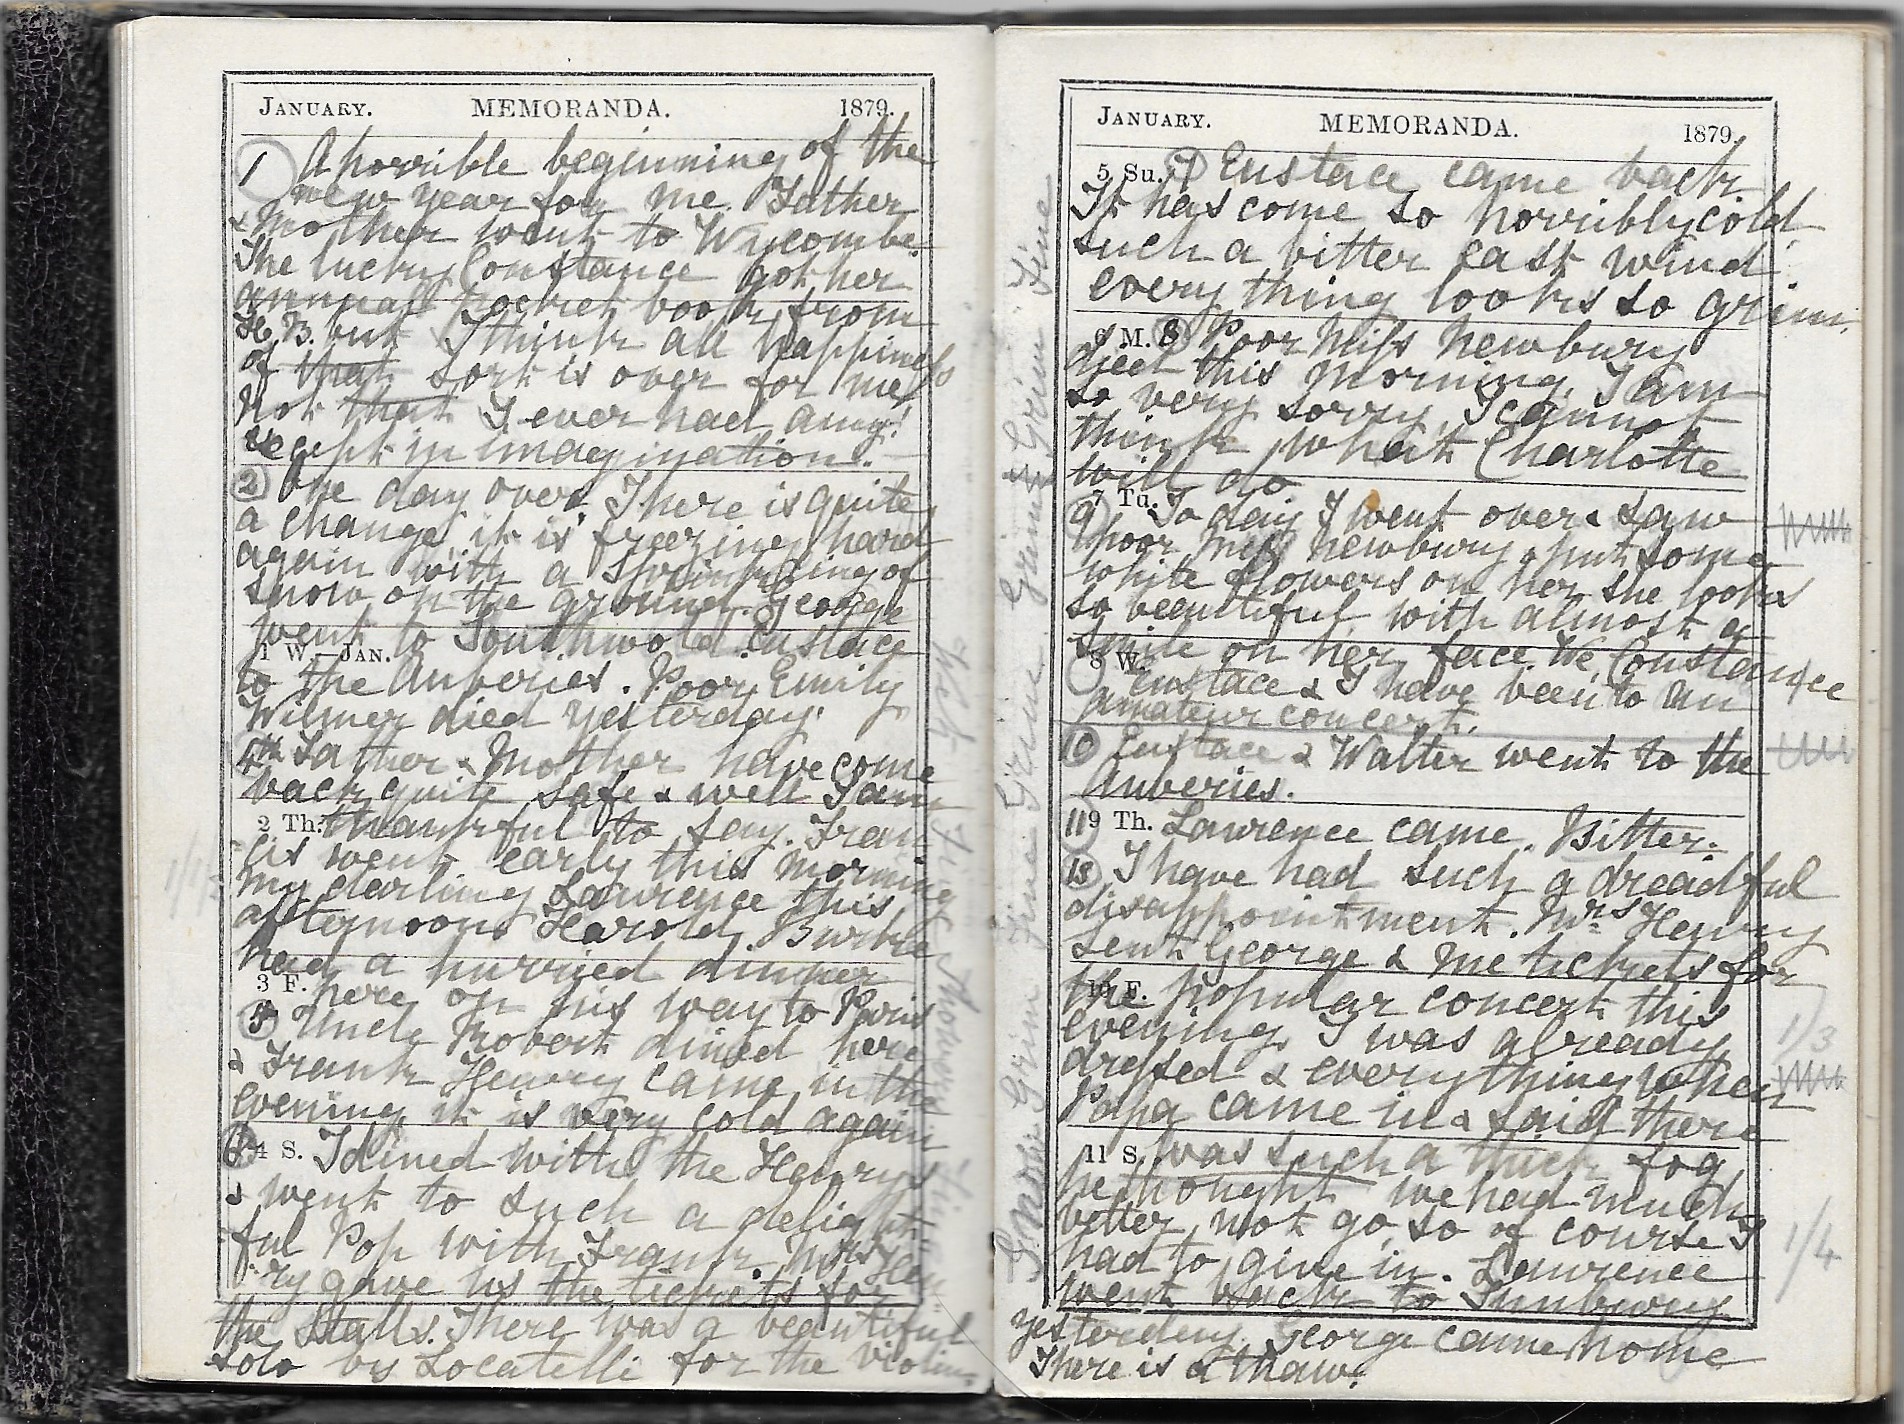 JANUARY. MEMORANDA. 1879.
1 A horrible beginning of the
new year for me. Father
& Mother went to Wycombe.
The lucky Constance got her
annual pocket book from
H. B. but I think all happiness
of that sort is over for me
Not that I ever had any!
except in imagination.
2 One day over. There is quite
a change it is freezing hard
again with a sprinkling of
snow on the ground. George
went to Southwold. Eustace
1 W.—JAN.
to the Auberies. Poor Emily
Wilmer died yesterday.
4th Father & Mother have come
back quite safe & well I am
2 Th. thankful to say. Fran
cis went early this morning
my darling Lawrence this
afternoon Harold Burke
had a hurried dinner
3 F. here on his way to Paris
Uncle Robert dined here
& Frank Henry came in the
evening it is very cold again
4 S. I dined with the Henrys
& went to such a delight
ful Pop with Frank. Mrs Hen
ry gave us the tickets for
the Stalls. There was a beautiful
solo by Locatelli for the violin.
1/1
JANUARY. MEMORANDA. 1879.
5 Su. 7 Eustace came back
It has come so horribly cold
such a bitter east wind
everything looks so grim.
6 M. 8 Poor Miss Newbury
died this morning. I am
so very sorry, I cannot
think what Charlotte
will do
7 Tu. To day I went over & saw
9 poor Miss Newbury & put some
white flowers on her she looks
so beautiful with almost a
smile on her face. We, Constance
8 W.
Eustace & I have been to an
amateur concert.
10 Eustace & Walter went to the
Auberies.
11 9 Th. Lawrence came. Bitter.
13 I have had such a dreadful
disappointment. Mrs Henry
sent George & me tickets for
10 F.
the popular concert this
evening, I was already
dressed & everything when
Papa came in & said there
11 S. was such a thick fog
he thought we had much
better not go, so of course I
had to give in. Lawrence
went back to Sunbury
yesterday. George came home
There is a thaw.
1/3
1/4